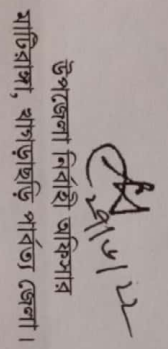 ২৯/৮/২২
উপজেলা নির্বাহী অফিসার
মাটিরাঙ্গা, খাগড়াছড়ি পার্বত্য জেলা।